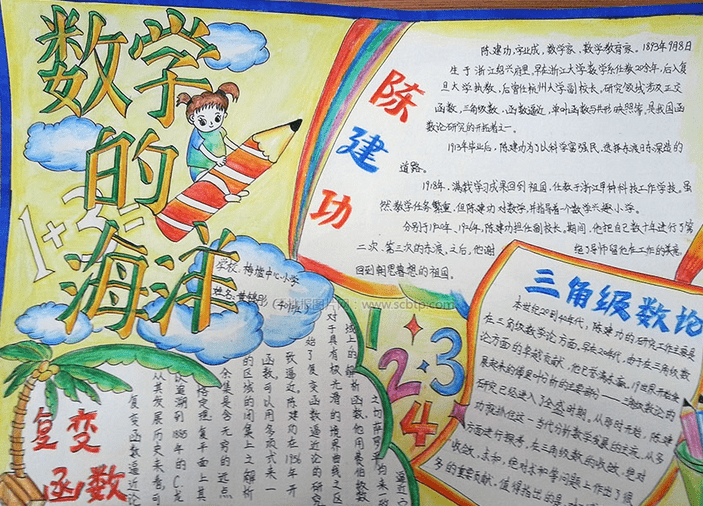 数学
的
海洋
1+3=
学校：梅墟中心小学
姓名：
陈建功
陈建功，字业成，数学家、数学教育家。1893年9月8日
生于浙江绍兴府里，早在浙江大学数学系任教20余年，后入复
旦大学执教，后曾任杭州大学副校长，研究领域涉及正交
函数，三角级数、函数逼近，单叶函数与共形映照等，是我国函
数论研究的开拓者之一。
1913年毕业后，陈建功为了以科学富强民，选择东渡日本深造的
道路。
1918年，满载学习成果回到祖国，任教于浙江甲种科技工作学校。虽
然教学任务繁重，但陈建功对数学，并指导着一个数学兴趣小学。
分别于1920年、1926年，陈建功担任副校长，期间，他把自己数十年进行了第
二次、第三次的东渡。之后，他谢绝了导师留他在工作的美意，
回到朝思暮想的祖国。
三角级数论
本世纪20到40年代，陈建功的研究工作主要是
在三角级数学论方面。早在20年代，由于在三角级数
论方面的卓越贡献，他已誉满东瀛。19世界开始发
展起来的傅里叶分析的主要部分——三角级数论的
研究已经进入了全盛时期。从那时开始，陈建
功就抓住这一当代分析数学发展的主流，从多
方面进行探索，在三角级数的收敛，绝对
收敛，求和，绝对求和等问题上作出了很
多的重要贡献，值得指出的是，
1 2 3 4
复变
函数
复变函数逼近论
从其发展历史来看，可
以追溯到1885年的C.龙
格定理 复平面上其
余集是含无穷的远点
的区域的闭集上之解析
函数，可以用多项式来一
致逼近。陈建功在1956年开
始了复变函数逼近论的研究
对于具有极光滑的境界曲线之区
域上的解析函数他用费伯级数
之切萨罗平均来一致
逼近
www.scbtp.com